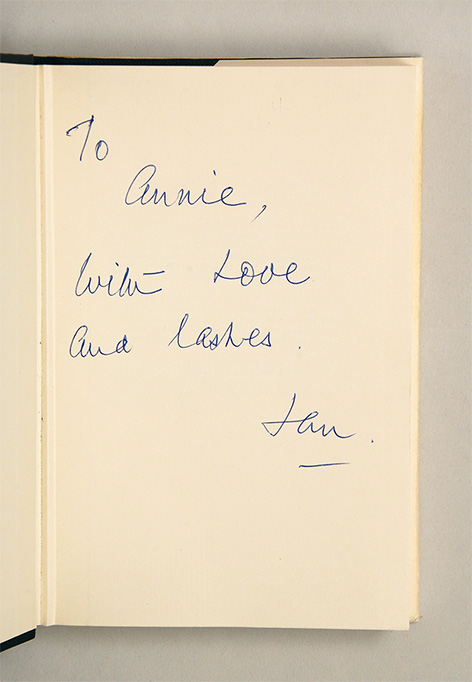 To
Annie,
With Love
And lashes.
Ian.